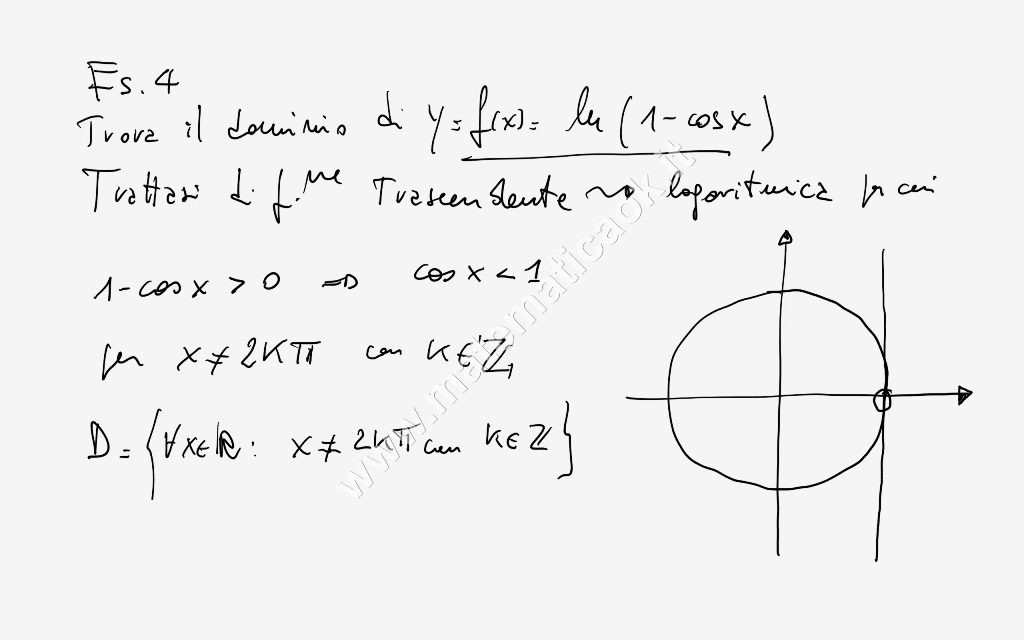 Es. 4
Trova il dominio di y = f(x) = ln (1-cosx)
Trattasi di f.ne Trascendente ⇝ logaritmica per cui
1-cosx > 0 ⇒ cosx < 1
per x ≠ 2Kπ con K∈ℤ
D = {∀x∈ℝ : x ≠ 2Kπ con K∈ℤ}
www.matematicaok.it